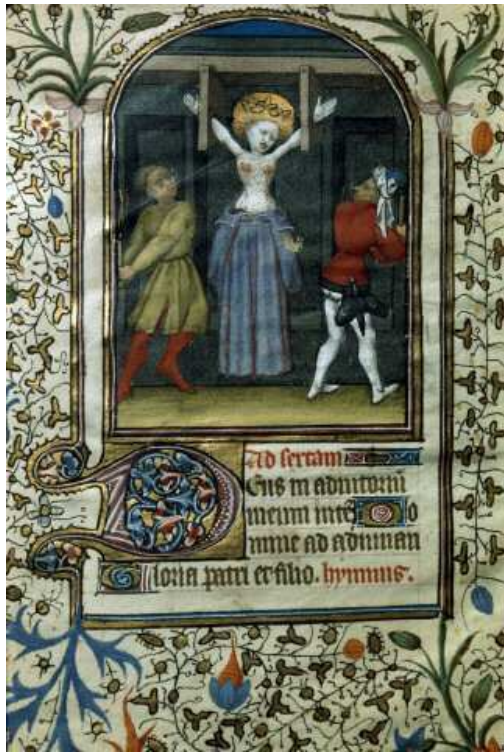 Ad sextam
Deus in adiutoriu
meum inte[n]do
mine ad adiuuan
Gloria patri et filio. hymnus.